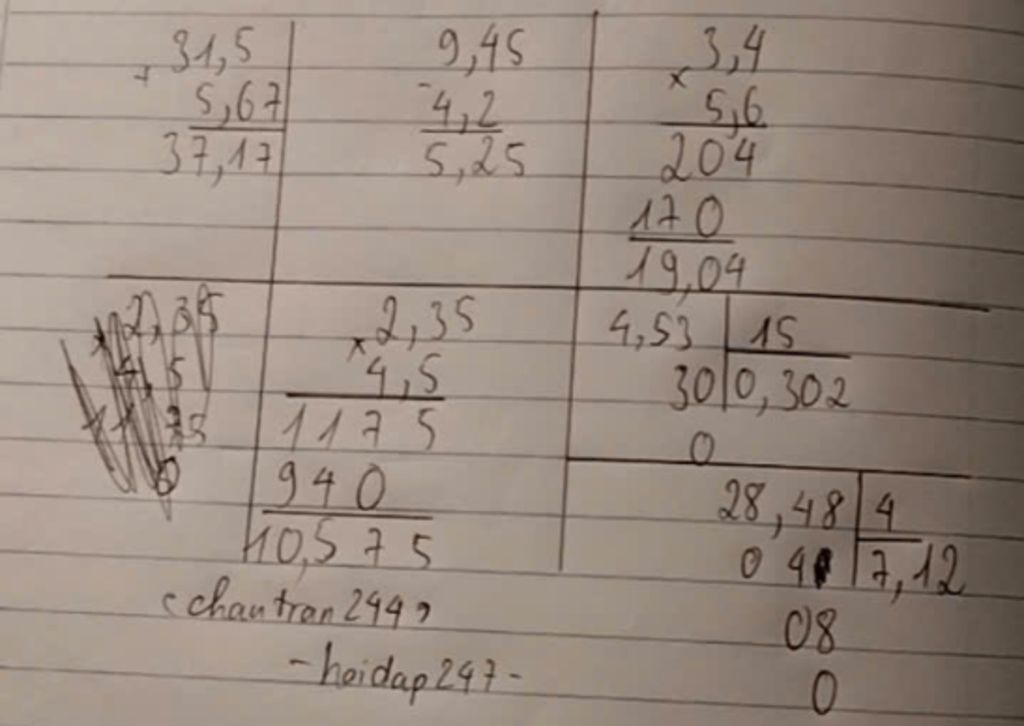 31,5
+
5,67
37,17
9,45
-
4,2
5,25
3,4
×
5,6
204
170
19,04
2,35
×
4,5
1175
940
10,575
4,53 | 15
30 | 0,302
0
28,48 | 4
0 4 | 7,12
08
0
chautran 244
-hoidap247-